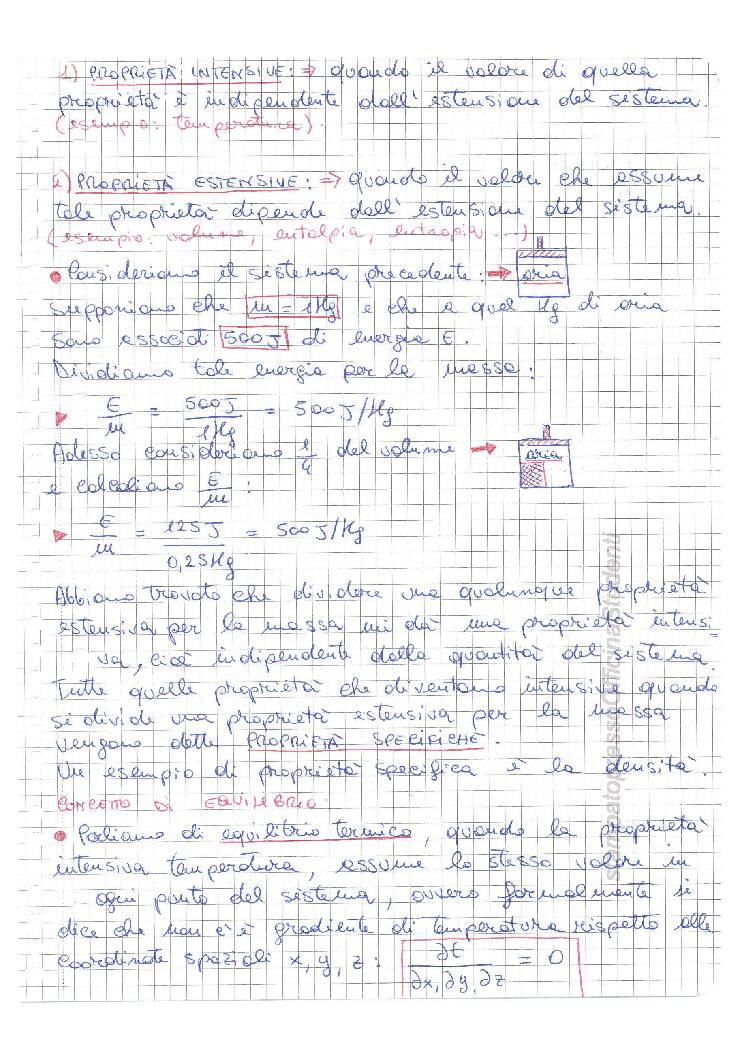 1) PROPRIETÀ INTENSIVE: ⇒ quando il valore di quella
proprietà è indipendente dall' estensione del sistema.
(esempio: temperatura).
2) PROPRIETÀ ESTENSIVE: ⇒ quando il valore che assume
tale proprietà dipende dall' estensione del sistema.
(esempio: volume, entalpia, entropia ...)
• Consideriamo il sistema precedente: → aria
supponiamo che m = 1Kg e che a quel Kg di aria
sono associati 500J di energia E.
Dividiamo tale energia per la massa:
E/m = 500J/1Kg = 500J/Kg
Adesso consideriamo 1/4 del volume → aria
e calcoliamo E/m :
E/m = 125J/0,25Kg = 500J/Kg
Abbiamo trovato che dividere una qualunque proprietà
estensiva per la massa mi dà una proprietà intensi=
va, cioè indipendente dalla quantità del sistema.
Tutte quelle proprietà che diventano intensive quando
si divide una proprietà estensiva per la massa
vengono dette PROPRIETÀ SPECIFICHE.
Un esempio di proprietà specifica è la densità.
CONCETTO DI EQUILIBRIO
• Parliamo di equilibrio termico, quando la proprietà
intensiva temperatura, assume lo stesso valore in
ogni punto del sistema, ovvero formalmente si
dice che non c'è gradiente di temperatura rispetto alle
coordinate spaziali x, y, z : ∂t/∂x,∂y,∂z = 0
stampatopressoOfficinaStudenti